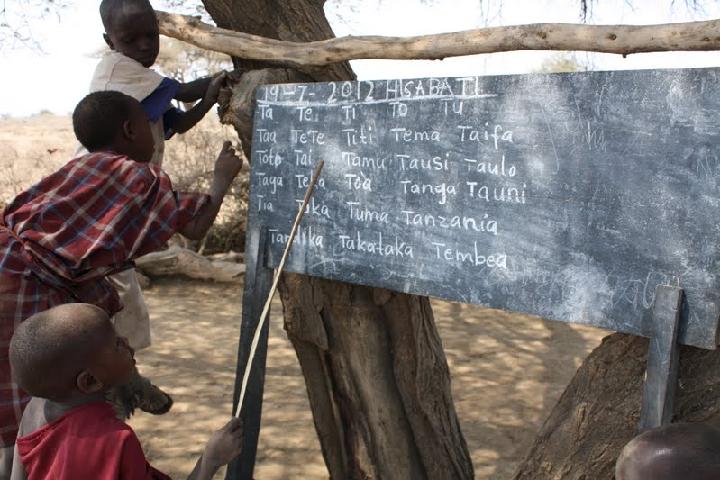 19-7-2012 HISABATI
Ta Te Ti To Tu
Taa TeTe Titi Tema Taifa
Toto Tai Tamu Tausi Taulo
Taga Teka Toa Tanga Tauni
Tia Toka Tuma Tanzania
Tandika Takataka Tembea